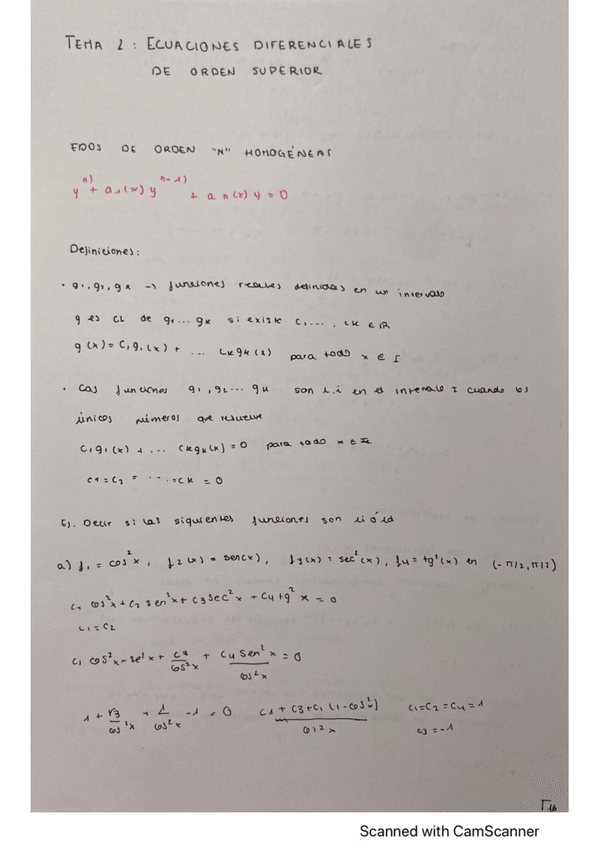 TEMA 2 : ECUACIONES DIFERENCIALES
DE ORDEN SUPERIOR
EDOS DE ORDEN "N" HOMOGÉNEAS
y^n) + a₁(x) y^n-1) + a n(x) y = 0
Definiciones:
• g₁, g₂, gk → funciones reales definidas en un intervalo
g es CL de g₁... gk si existe C₁, ... , CK ∈ ℝ
g(x) = C₁g₁(x) + ... Ckgk(x) para todo x ∈ I
• Las funciones g₁, g₂ ... gk son l.i en el intervalo I cuando los
únicos números que resuelve
C₁g₁(x) + ... Ckgk(x) = 0 para todo x ∈ I
C1 = C₂ = ..... = CK = 0
Ej. Decir si las siguientes funciones son li ó ld
a) f₁ = cos²x, f₂(x) = sen(x), f₃(x) = sec²(x), f₄ = tg²(x) en (-π/2, π/2)
C₁ cos²x + C₂ sen²x + C₃ sec²x + C₄ tg² x = 0
C₁ = C₂
C₁ cos²x + se²x + C3/cos²x + C₄ sen²x/cos²x = 0
1 + C3/cos²x + 1/cos²x - 1 = 0 C1 + C3 + C₁ (1-cos²)/cos²x C₁ = C₂ = C₄ = 1
C3 = -1
Scanned with CamScanner